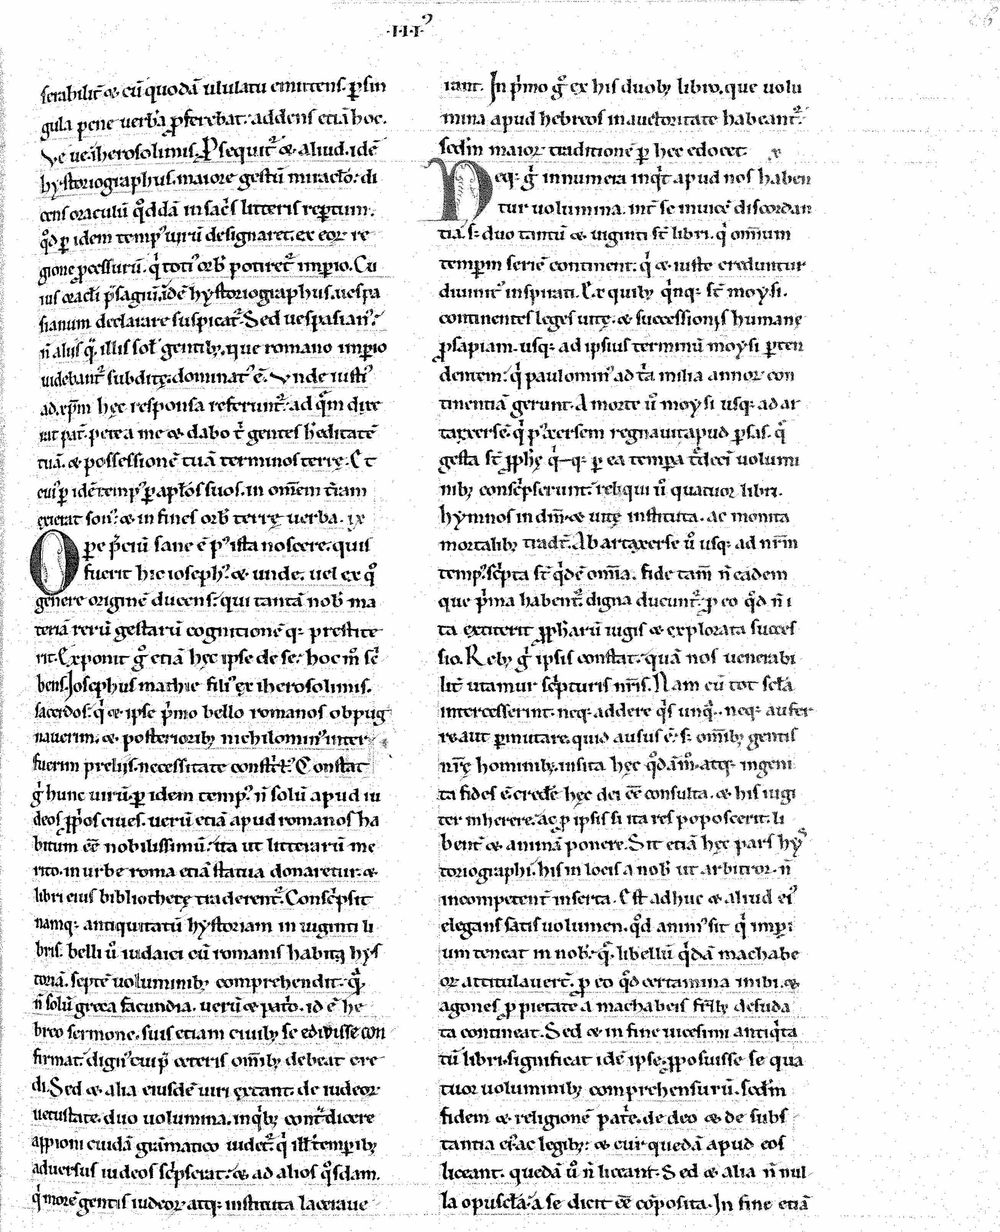 ·III·
26
serabilit̄ & cū quodā ululatu emittens. p̱ sin
gula pene verba p̱ferebat. addens etiā hoc.
Ve ue iherosolimis. Psequit᷑ & aliud. idē
hystoriographus. maiore gestū miraclo. di
cens oraculū qͦddā in sac̄s litteris rep̱tum.
qͦd p̱ idem temp᷒ uirū designaret. ex eoꝝ re
gione p̱cessurū. qͥ toti᷒ orb̄ potiret᷑ imp̱io. Cu
ius oracli p̄sagiū. idē hystoriographus. uespa
sianum declarare suspicat᷑. Sed uespasian᷒
n̄ aliis qᷓ illis sol̄ gentib;. que romano imp̱io
uidebant᷑ subditę. dominat᷒ ē. Vnde iusti᷒
ad xp̄m hęc responsa referunt᷑. ad qͤm dixe
rit pat̄. pete a me & dabo t̄ gentes h̄editatē
tuā. & possessionē tuā terminos terrę. Et
cui᷒ p̱ idē temp᷒ p̱ ap̄los suos. in omēm t̄ram
exierat son᷒. & in fines orb̄ terrę verba. ix
Ope p̄ciū sane ē p᷒ ista noscere. quis
fuerit hic ioseph᷒. & unde. uel ex qͦ
genere originē ducens. qui tantā nob̄ ma
teriā rerū gestarū cognitionēq; prestite
rit. Exponit gͦ etiā hęc ipse de se. hoc m̄ scͥ
bens. Josephus mathie fili᷒ ex iherosolimis.
sacerdos. qͥ & ipse pͥmo bello romanos obpug
nauerim. & posteriorib; nichilomin᷒ inter
fuerim preliis. necessitate constͥct᷒. Constat
gͥ hunc uirū. p̱ idem temp᷒. n̄ solū apud iu
deos p̱p̱os ciues. verū etiā apud romanos ha
bitum eē nobilissimū. ita ut litterarū me
rito. in urbe roma etiā statua donaretur. &
libri eius bibliothecę traderent᷑. Conscͥpsit
namq; antiquitatū hystoriam in uiginti li
bris. belli ū iudaici cū romanis habitę hys
toriā. septē uoluminib; comprehendit. qᷓ
n̄ solū greca facundia. verū & pat̄o. id ē he
breo sermone. suis etiam ciuib; se edidisse con
firmat. dign᷒ cui p̄ ceteris omīb; debeat cre
di. Sed & alia eiusdē uiri extant. de iudeoꝝ
uetustate. duo volumina. in qͥb; cont̄dicere
appioni cuidā grāmatico uidet᷑. qͥ ill̄ temp̱ib;
aduersus iudeos scͥpserat. & ad alios qͦsdam.
qͥ morē gentis iudeoꝝ atq; instituta lacerauē
rant. In pͥmo gͦ ex his duob; libro. que uolu
mina apud hebreos in auctoritate habeant᷑.
sedm̄ maioꝝ traditionē p̱ hęc edocet. x
Neq; gͥ innumera inqͥt apud nos haben
tur uolumina. int̄ se inuicē discordan
tia. s; duo tantū & uiginti st̄ libri. qͥ omnium
temp̱m seriē continent. qͥ & iuste creduntur
diuinit᷒ inspirati. Ex quib; qͥnq; st̄ moysi.
continentes leges uitę. & successionis humanę
p̱sapiam. usq; ad ipsius terminū moysi p̱ten
dentem. qͥ paulomin᷒ ad t̄a milia annoꝝ con
tinentiā gerunt. A morte ū moysi usq; ad ar
taxersē. qͥ p᷒ xersem regnauit apud p̱sas. qͦ
gesta st̄ p̱phę qͥq; p̱ ea temp̱a t̄decī volumi
nib; conscͥpserunt. reliqui ū quatuor libri.
hymnos in dm̄ & uitę instituta. ac monita
mortalib; tradt̄. Ab artaxerse ū usq; ad nr̄m
temp᷒ scͥpta st̄ qͥdē omīa. fide tam̄ n̄ eadem
que pͥma habent᷑. digna ducunt᷑. p̱ eo qͦd n̄ i
ta extiterit p̱pharū iugis & explorata succes
sio. Reb; gͥ ipsis constat. quā nos uenerabi
lit̄ utamur scͥpturis nr̄is. Nam cū tot sclā
intercesserint. neq; addere qͥs unqᷓ. neq; aufer
re. aut p̱mutare. quid ausus ē. s; omīb; gentis
nr̄ę hominib;. insita hęc qͦdāmͦ. atq; ingeni
ta fides ē. credē hęc dei eē consulta. & his iugi
ter inherere. ac p̱ ipsis si ita res poposcerit. li
bent̄ & animā ponere. Sit etiā hęc pars hys
toriographi. his in locis a nob̄ ut arbitror. n̄
incompetent̄ inserta. Est adhuc & aliud ei᷒
elegans satis uolumen. qͦd anim᷒ sit qͥ imp̱i
um teneat in nob̄. qᷓ libellū qͥdā machabe
oꝝ attitulauer̄. p̱ eo qͦd certamina inibi. &
agones p̱ pietate a machabeis fr̄ib; desuda
ta contineat. Sed & in fine uicesimi antiqͥta
tū libri. significat idē ipse. p̱posuisse se qua
tuor uoluminib; comprehensurū. sedm̄
fidem & religionē pat̄ę. de deo & de subs
tantia ei᷒. ac legib;. & cur quedā apud eos
liceant. quedā ū n̄ liceant. Sed & alia n̄ nul
la opuscla. a se dicit eē cōposita. In fine etiā